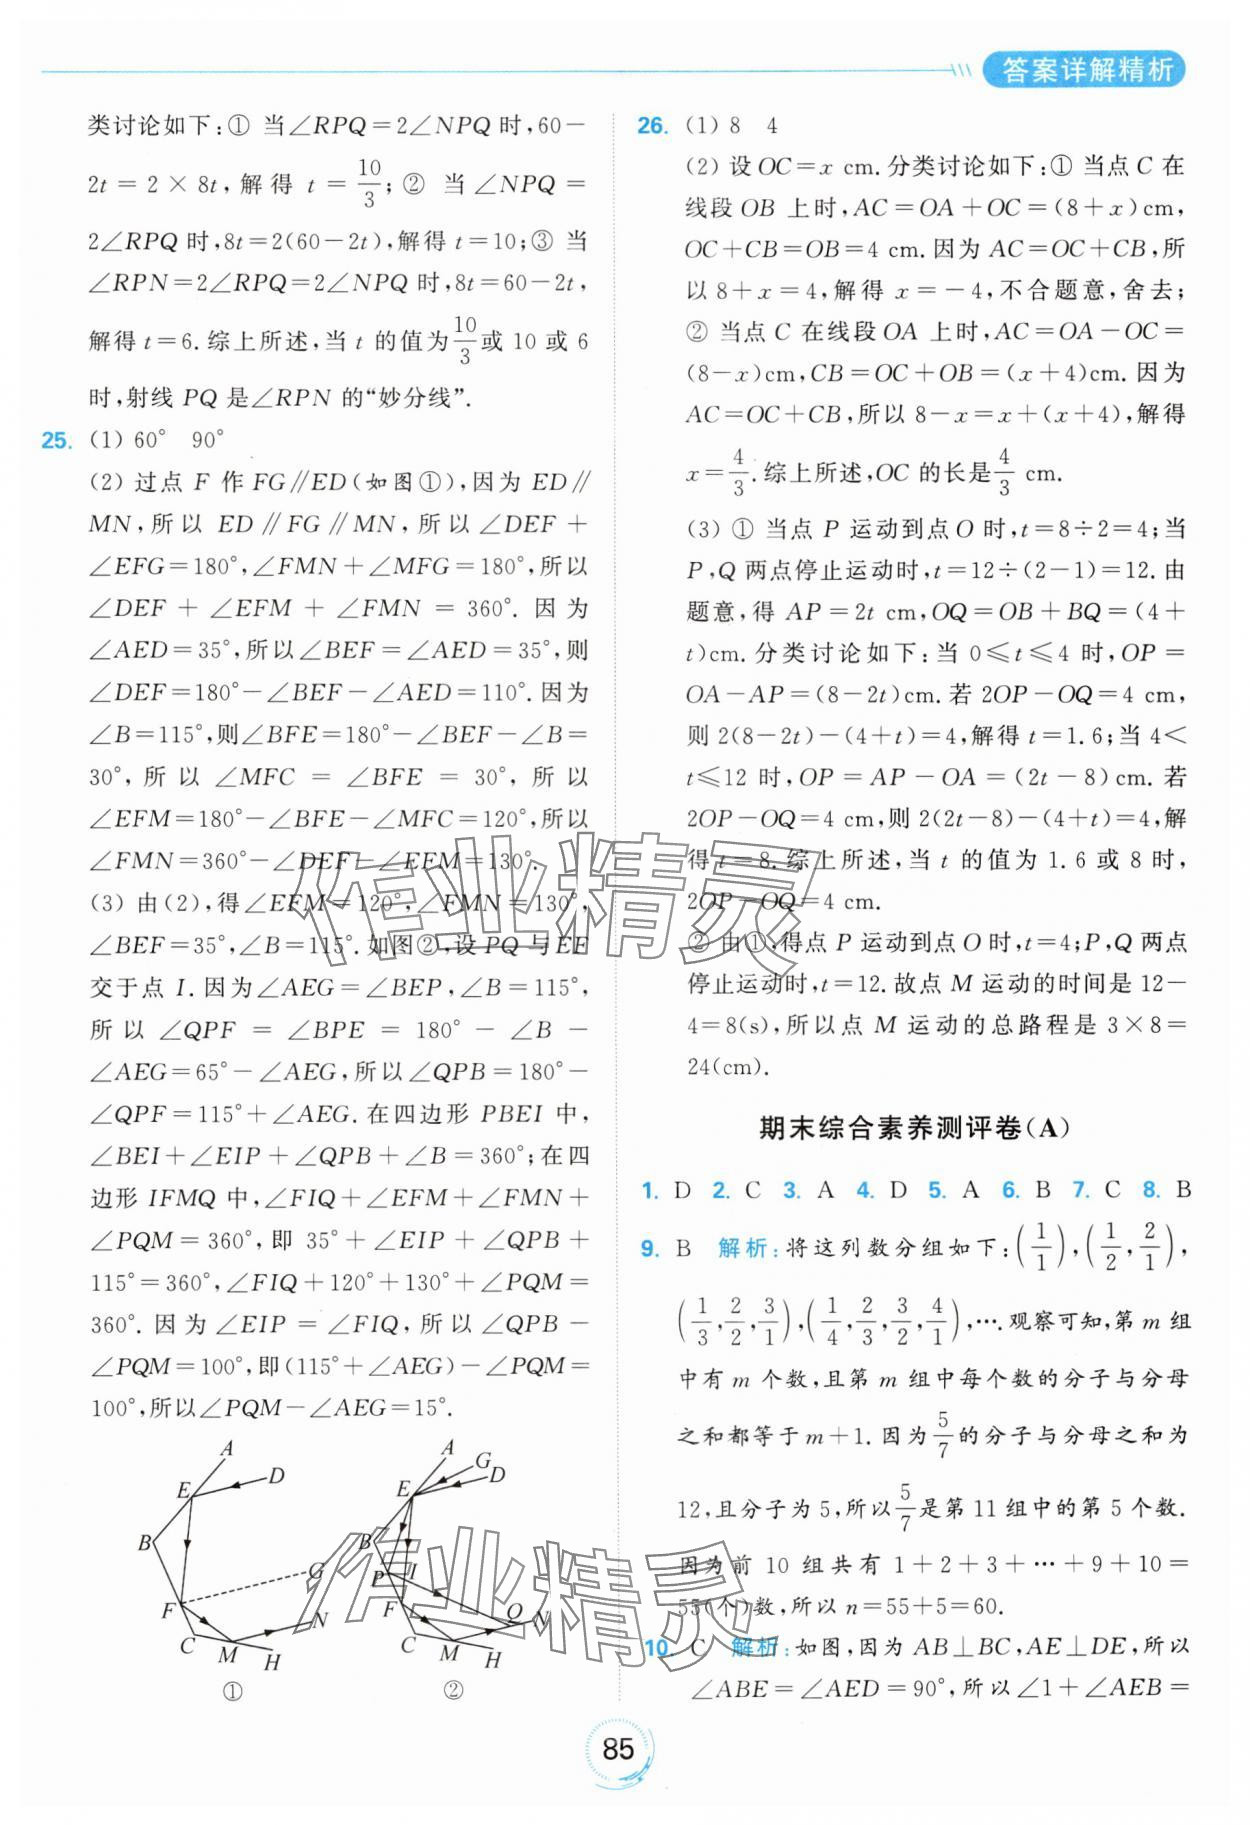 答案详解精析
类讨论如下:① 当∠RPQ=2∠NPQ 时,60-
2t = 2 × 8t, 解得 t = 10/3; ② 当 ∠NPQ =
2∠RPQ 时,8t=2(60-2t),解得 t=10;③ 当
∠RPN=2∠RPQ=2∠NPQ 时,8t=60-2t,
解得 t=6.综上所述,当 t 的值为10/3或 10 或 6
时,射线 PQ 是∠RPN 的“妙分线”.
25. (1) 60° 90°
(2) 过点 F 作 FG∥ED(如图①),因为 ED∥
MN,所以 ED∥FG∥MN,所以∠DEF+
∠EFG=180°,∠FMN+∠MFG=180°,所以
∠DEF + ∠EFM + ∠FMN = 360°. 因为
∠AED=35°,所以∠BEF=∠AED=35°,则
∠DEF=180°-∠BEF-∠AED=110°.因为
∠B=115°,则∠BFE=180°-∠BEF-∠B=
30°, 所以 ∠MFC = ∠BFE = 30°, 所以
∠EFM=180°-∠BFE-∠MFC=120°,所以
∠FMN=360°-∠DEF-∠EFM=130°.
(3) 由(2),得∠EFM=120°,∠FMN=130°,
∠BEF=35°,∠B=115°.如图②,设 PQ 与 EF
交于点 I.因为∠AEG=∠BEP,∠B=115°,
所以 ∠QPF = ∠BPE = 180° - ∠B -
∠AEG=65°-∠AEG,所以∠QPB=180°-
∠QPF=115°+∠AEG.在四边形 PBEI 中,
∠BEI+∠EIP+∠QPB+∠B=360°;在四
边形 IFMQ 中,∠FIQ+∠EFM+∠FMN+
∠PQM=360°,即 35°+∠EIP+∠QPB+
115°=360°,∠FIQ+120°+130°+∠PQM=
360°.因为∠EIP=∠FIQ,所以∠QPB-
∠PQM=100°,即(115°+∠AEG)-∠PQM=
100°,所以∠PQM-∠AEG=15°.
A
D
E
B
G
F
N
C
M
H
①
A
G
D
E
B
P
I
F
Q
N
C
M
H
②
26. (1) 8 4
(2) 设 OC=x cm.分类讨论如下:① 当点 C 在
线段 OB 上时,AC=OA+OC=(8+x)cm,
OC+CB=OB=4 cm.因为 AC=OC+CB,所
以 8+x=4,解得 x=-4,不合题意,舍去;
② 当点 C 在线段 OA 上时,AC=OA-OC=
(8-x)cm,CB=OC+OB=(x+4)cm.因为
AC=OC+CB,所以 8-x=x+(x+4),解得
x=4/3.综上所述,OC 的长是4/3 cm.
(3) ① 当点 P 运动到点 O 时,t=8÷2=4;当
P,Q 两点停止运动时,t=12÷(2-1)=12.由
题意,得 AP=2t cm,OQ=OB+BQ=(4+
t)cm.分类讨论如下:当 0≤t≤4 时,OP=
OA-AP=(8-2t)cm.若 2OP-OQ=4 cm,
则 2(8-2t)-(4+t)=4,解得 t=1.6;当 4<
t≤12 时,OP=AP-OA=(2t-8)cm.若
2OP-OQ=4 cm,则 2(2t-8)-(4+t)=4,解
得 t=8.综上所述,当 t 的值为 1.6 或 8 时,
2OP-OQ=4 cm.
② 由①,得点 P 运动到点 O 时,t=4;P,Q 两点
停止运动时,t=12.故点 M 运动的时间是 12-
4=8(s),所以点 M 运动的总路程是 3×8=
24(cm).
期末综合素养测评卷(A)
1. D 2. C 3. A 4. D 5. A 6. B 7. C 8. B
9. B 解析:将这列数分组如下:(1/1),(1/2,2/1),
(1/3,2/2,3/1),(1/4,2/3,3/2,4/1),….观察可知,第 m 组
中有 m 个数,且第 m 组中每个数的分子与分母
之和都等于 m+1.因为5/7的分子与分母之和为
12,且分子为 5,所以5/7是第 11 组中的第 5 个数.
因为前 10 组共有 1+2+3+…+9+10=
55(个)数,所以 n=55+5=60.
10. C 解析:如图,因为 AB⊥BC,AE⊥DE,所以
∠ABE=∠AED=90°,所以∠1+∠AEB=
85
作业精灵
作业精灵